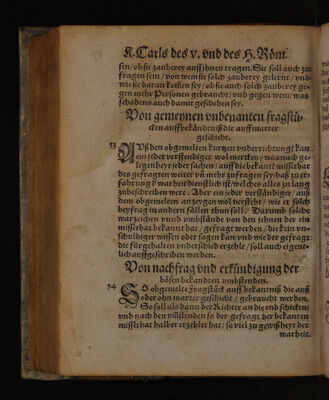 K. Carls des v. vnd des H. Röm
sen/ob sie zauberey auff ihnen tragen. Sie soll auch zu
fragen sein/von wem sie solch zauberey gelernt/vnd
wie sie daran kom̃en sey/ob sie auch solch zauberey ge-
gen mehr Personen gebraucht/vnd gegen wem/was
schadens auch damit geschehen sey.
Von gemeynen vnbenanten fragstü-
cken auff bekãndtniß die auff marter
geschicht.
53 AUß den obgemelten kurtzen vnderrichtung kan
ein jeder verstendiger wol mercken/was nach ge-
legenheyt jeder sachen/auff die bekant missethat
des gefragten weiter vñ mehr zu fragen sey/daß zu er-
fahrung d̕ warheit dienstlich ist/welches alles zu lang
zubeschreiben were. Aber ein jeder verständiger/auß
dem obgemelten anzeygen wol versteht/wie er solch
beyfrag in andern fällen thun soll. Darumb solche
warzeichen vnnd vmbstände von den jehnen der ein
missethat bekannt hat/gefragt werden/die kein vn-
schuldiger wissen oder sagen kan/vnd wie der gefragt
die fürgehalten vnderscheid erzehlt/soll auch eigent-
lich auffgeschriben werden.
Von nachfrag vnd erkündigung der
bösen bekandten vmbstenden.
54 SO obgemelte fragstück auff bekantniß die auß
oder ohn marter geschicht/gebraucht werden.
So soll als dann der Richter an die end schicken/
vnd nach den vm̃stenden so der gefragt der bekanten
missethat halber erzehlet hat/so viel zu gewißheyt der
warheit.